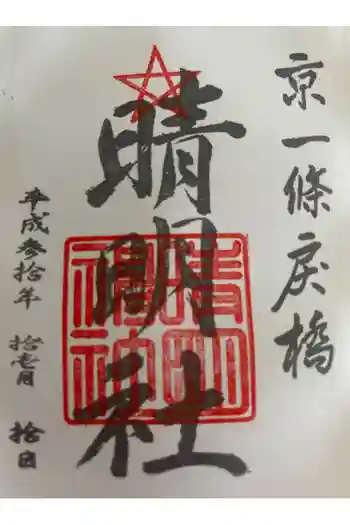 京一條戻橋
晴明社
晴明神社
平成参拾年 拾壱月 拾日